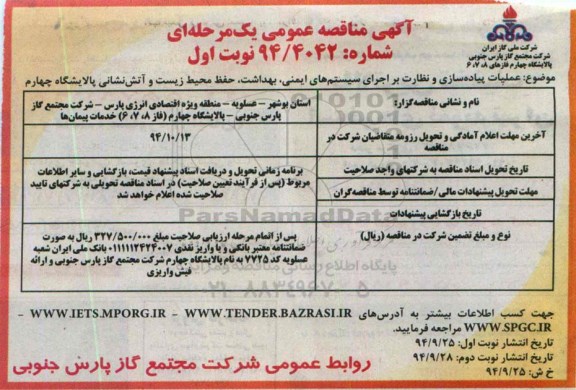 آگهی مناقصه عمومی یک‌مرحله‌ای
شماره: ۹۴/۴۰۴۲ نوبت اول
شرکت ملی گاز ایران
شرکت مجتمع گاز پارس جنوبی
پالایشگاه چهارم فازهای ۸، ۷، ۶
موضوع: عملیات پیاده‌سازی و نظارت بر اجرای سیستم‌های ایمنی، بهداشت، حفظ محیط زیست و آتش‌نشانی پالایشگاه چهارم
نام و نشانی مناقصه‌گزار:
استان بوشهر – عسلویه – منطقه ویژه اقتصادی انرژی پارس – شرکت مجتمع گاز
پارس جنوبی – پالایشگاه چهارم (فاز ۸، ۷، ۶) خدمات پیمان‌ها
آخرین مهلت اعلام آمادگی و تحویل رزومه متقاضیان شرکت در
مناقصه
۹۴/۱۰/۱۳
تاریخ تحویل اسناد مناقصه به شرکتهای واجد صلاحیت
مهلت تحویل پیشنهادات مالی/ضمانتنامه توسط مناقصه‌گران
تاریخ بازگشایی پیشنهادات
برنامه زمانی تحویل و دریافت اسناد پیشنهاد قیمت، بازگشایی و سایر اطلاعات
مربوط (پس از فرآیند تعیین صلاحیت) در اسناد مناقصه تحویلی به شرکتهای تایید
صلاحیت شده اعلام خواهد شد
نوع و مبلغ تضمین شرکت در مناقصه (ریال)
پس از اتمام مرحله ارزیابی صلاحیت مبلغ ۳۲۷/۵۰۰/۰۰۰ ریال به صورت
ضمانتنامه معتبر بانکی و یا واریز نقدی ۰۱۱۱۱۱۲۴۲۴۰۰۷ بانک ملی ایران شعبه
عسلویه کد ۷۷۲۵ به نام پالایشگاه چهارم شرکت مجتمع گاز پارس جنوبی و ارائه
فیش واریزی
ParsNamadData
پایگاه اطلاع رسانی مناقصه و مزایده
۰۲۱-۸۸۳۴۹۶۷۰-۵
جهت کسب اطلاعات بیشتر به آدرس‌های WWW.IETS.MPORG.IR – WWW.TENDER.BAZRASI.IR –
WWW.SPGC.IR مراجعه فرمایید.
تاریخ انتشار نوبت اول: ۹۴/۹/۲۵
تاریخ انتشار نوبت دوم: ۹۴/۹/۲۸
خ ش: ۹۴/۹/۲۵
روابط عمومی شرکت مجتمع گاز پارس جنوبی